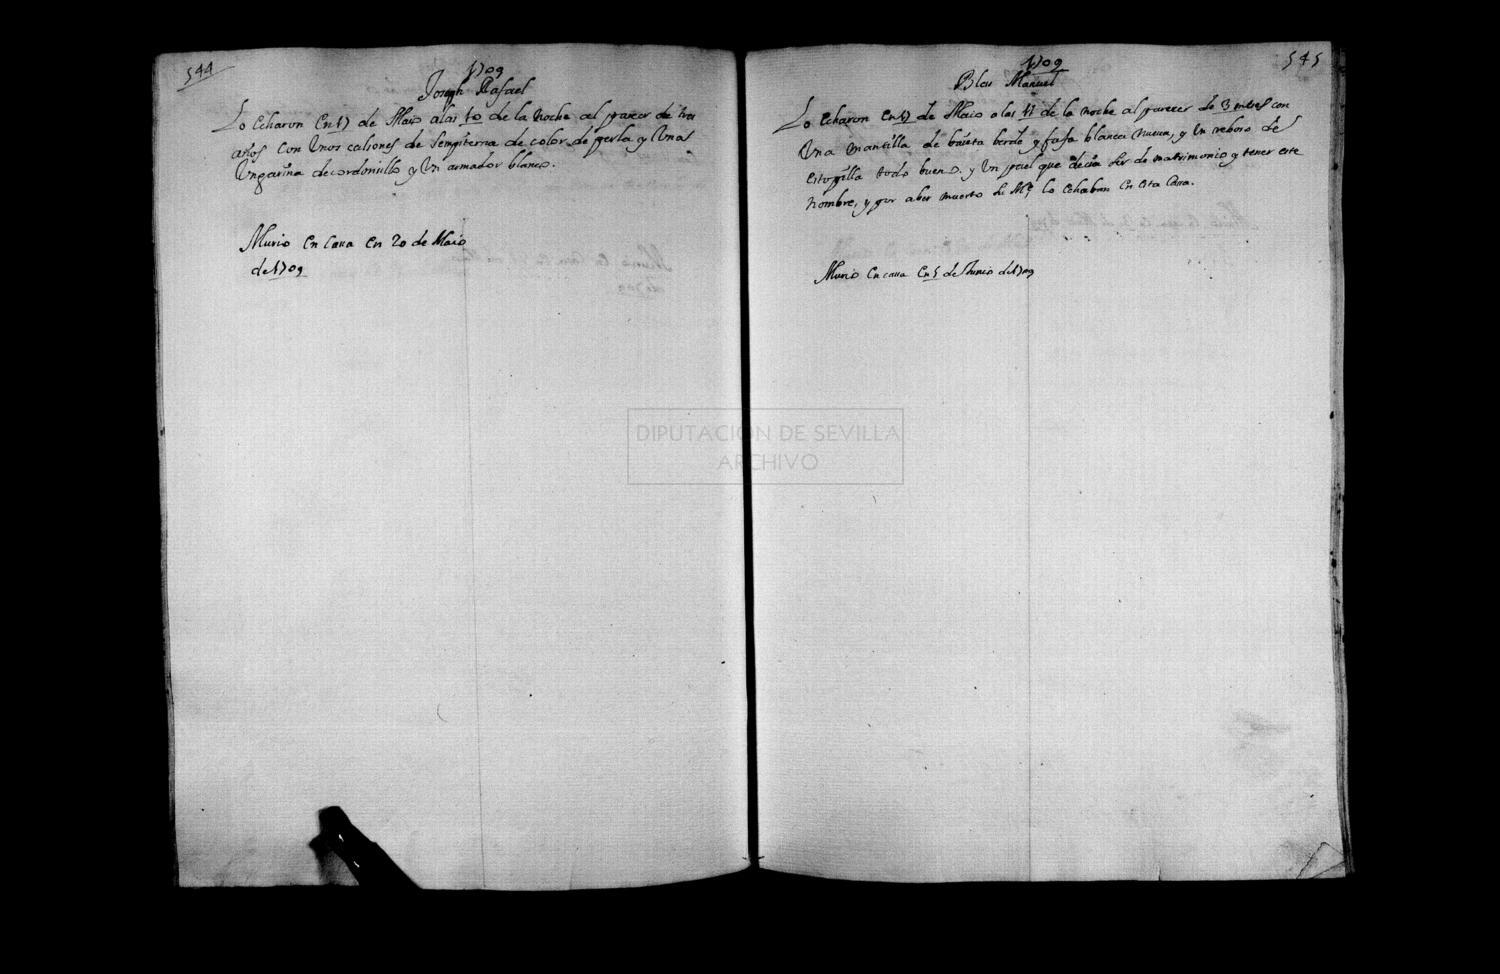 544
1709
Joseph Rafael
Lo Echaron En 17 de Maio a las 10 de la Noche al pareser de tres
años con Vnos calsones de Sempiterna de color de perla y Vna
Vngarina de cordonsillo y Vn armador blanco.
Murio En Casa en 20 de Maio
de 1709
545
1709
Blas Manuel
Lo Echaron En 17 de Maio a las 11 de la Noche al pareser de 3 meses con
Vna mantilla de baieta berde y faxa blanca nueva, y Vn reboso de
estopilla todo bueno. y Vn papel que decia ser de matrimonio y tener este
nombre, y por aber muerto su Me lo echaban En esta Casa.
Murio En casa En 5 de Junio de 1709
DIPUTACIÓN DE SEVILLA
ARCHIVO